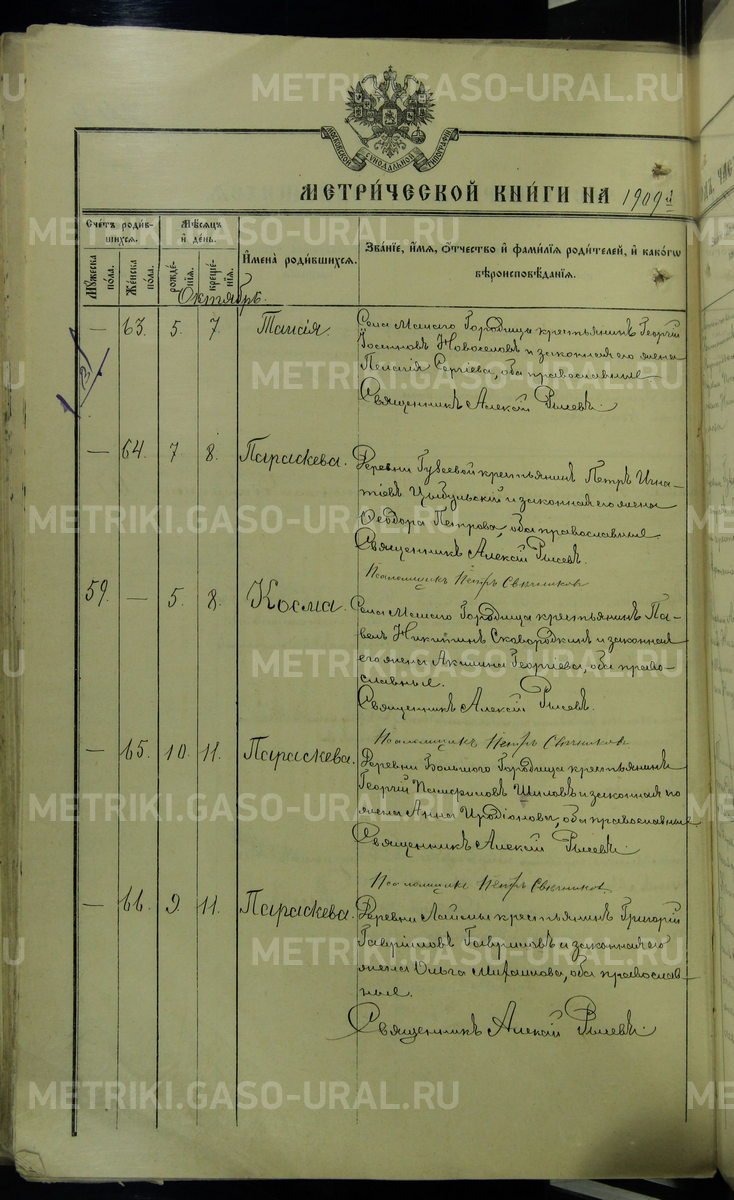 METRIKI.GASO-URAL.RU
МОСКОВСКОЙ СѴНОДАЛЬНОЙ ТИПОГРАФІИ
МЕТРИ́ЧЕСКОЙ КНИ́ГИ НА 1909 й
Счетъ роди́в-
шихсѧ.
Мѣсѧцъ
и҆ де́нь.
Мꙋжеска пола.
Же́нска пола.
рожде́-
нїѧ.
креще́-
нїѧ.
И҆мена̀ роди́вшихсѧ.
Зва́нїе, и҆́мѧ, ѻ҆́тчество и҆ фами́лїѧ роди́телей, и҆ како́гѡ
вѣроисповѣ́данїѧ.
Октябрь.
— 63. 5. 7. Таисія
Села Малаго Городища крестьянинъ Георгій
Новоселовъ и законная его жена
Пелагія Сергіева, оба православные
Священникъ Алексій
— 64. 7. 8. Параскева.
Деревни Гусевой крестьянинъ Петръ Игна-
тіевъ Цыбульскій и законная его жена
Ѳеодора Петрова, оба православные.
Священникъ Алексій
Псаломщикъ Петръ
59. — 5. 8. Косма.
Села Малаго Городища крестьянинъ Па-
велъ Никитинъ Сковородкинъ и законная
его жена Акилина Георгіева, оба право-
славные.
Священникъ Алексій
Псаломщикъ Петръ
— 65. 10. 11. Параскева.
Деревни Большого Городища крестьянинъ
Георгій Памфиловъ Шиловъ и законная его
жена Анна Иродіонова, оба православные
Священникъ Алексій
Псаломщикъ Петръ
— 66. 9. 11. Параскева.
Деревни Лаймы крестьянинъ Григорій
Гавріиловъ Гавриловъ и законная его
жена Ольга, оба православ-
ные.
Священникъ Алексій